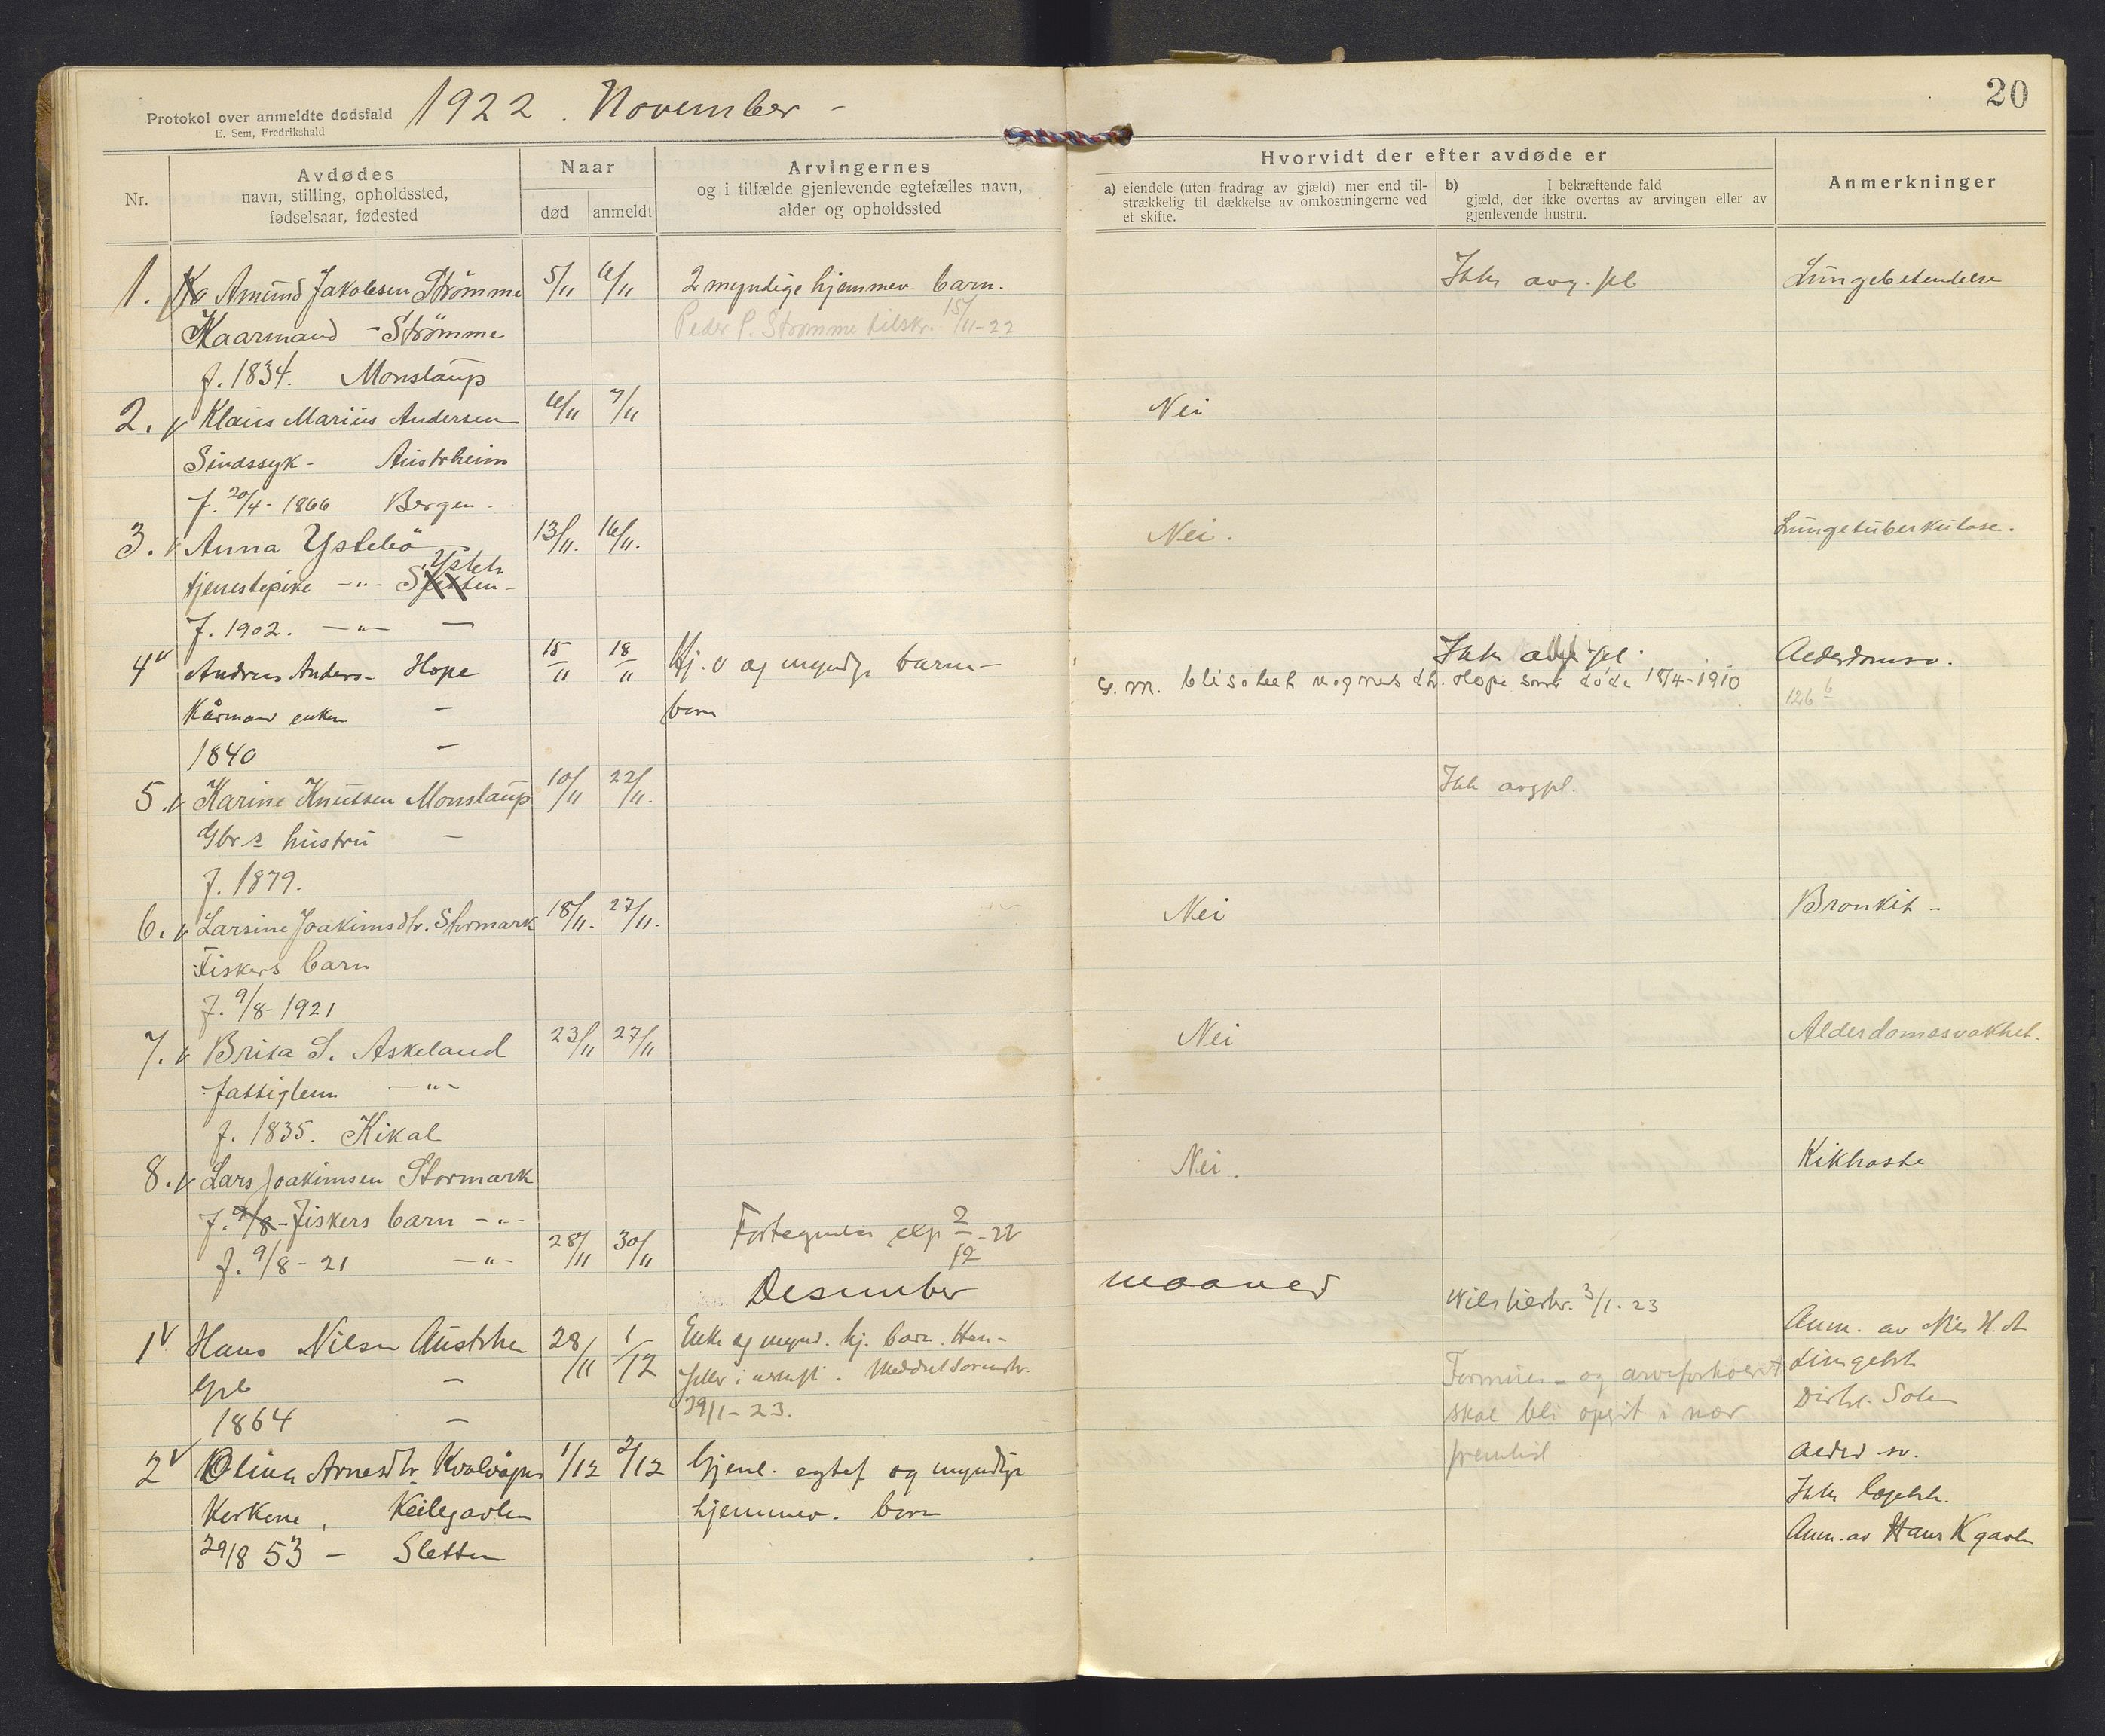 20
Protokol over anmeldte dødsfald 1922. November -
E. Sem, Fredrikshald
Nr.
Avdødes
navn, stilling, opholdssted,
fødselsaar, fødested
Naar
død anmeldt
Arvingernes
og i tilfælde gjenlevende egtefælles navn,
alder og opholdssted
Hvorvidt der efter avdøde er
a) eiendele (uten fradrag av gjæld) mer end til-
strækkelig til dækkelse av omkostningerne ved
et skifte.
b) I bekræftende fald
gjæld, der ikke overtas av arvingen eller av
gjenlevende hustru.
Anmerkninger
1. Amund Jakobsen Strømme 5/11 6/11 2 myndige hjemmev. barn. Ikke avg. pl Lungebetendelse
Kaarmand - Strømme Peder P. Strømme tilskr. 15/11-22
f. 1834. Monslaup
2. Klaus Marius Andersen 6/11 7/11 Nei
Sindssyk - Austrheim
f. 20/4-1866 Bergen -
3. Anna Ystebö 13/11. 16/11. Nei. Lungetuberkulose.
tjenestepike -"- Ysteb
f. 1902. -"- -
4 Andreas Anders- Hope 15/11 18/11 Hj. v og myndige barn- Ikke avg. pl. Alderdomsv.
G. m. Elisabet Magnes dtr. Hope som døde 18/4-1910 126 6
Kårmand enkem - born
1840 -
5. Karine Knutsen Monslaup 10/11 22/11. Ikk avgpl.
Gbr s hustru -
f. 1879.
6. Larsine Joakimsdtr. Stormark 18/11. 27/11. Nei Bronkit -
Fiskers barn
f. 9/8-1921
7. Brita S. Askeland 23/11 27/11 Nei Alderdomssvakhet.
fattiglem -"-
f. 1835. Kikal
8. Lars Joakimsen Stormark Nei. Kikhoste
f. 9/8 - Fiskers barn -"-
f. 9/8 - 21 -"- 28/11 30/11 Fortegnelse exp 2/12-22
Desember maaned
Nils tilskr. 3/1-23
1 Hans Nilsen Austrhe 28/11 1/12 Enke og mynd. hj. barn. Hen- Anm. av Nils H. A
Gbr - i uskift. Meddelt 
29/1-23. Formues- og arveforhold Lungebt
1864 - skal bli opgit i nær Distrl. Sole
fremtid.
2 Olina Arnesdtr Kvalvågnes 1/12 2/12 Gjenl. egtef og myndige Alderd sv.
Kårkone, Keilegavlen hjemmev. born Ikke lægebh.
29/8 53 - Sletten Anm. av Hans K gavlen